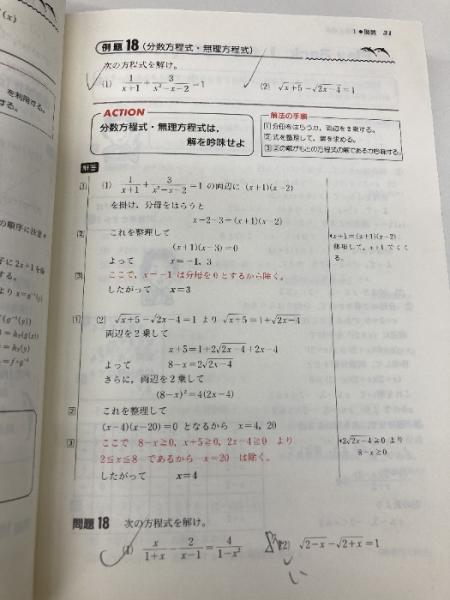 1●関数 31
例題 18 (分数方程式・無理方程式)
次の方程式を解け。
(1) 1/(x+1) + 3/(x²−x−2) = 1 (2) √(x+5) − √(2x−4) = 1
ACTION
分数方程式・無理方程式は,
解を吟味せよ
解法の手順
1 分母をはらうか, 両辺を2乗する。
2 式を整理して, 解を求める。
3 2の解がもとの方程式の解であるか吟味する。
解答
1 (1) 1/(x+1) + 3/(x²−x−2) = 1 の両辺に (x+1)(x−2)
を掛け, 分母をはらうと
x−2+3=(x+1)(x−2)
2 これを整理して
(x+1)(x−3)=0
よって x=−1, 3
3 ここで, x=−1 は分母を0とするから除く。
したがって x=3
•x+1=(x+1)(x−2)
1 (2) √(x+5) − √(2x−4) = 1 より √(x+5) = 1+√(2x−4)
両辺を2乗して
x+5=1+2√(2x−4)+2x−4
よって 8−x=2√(2x−4)
さらに, 両辺を2乗して
(8−x)²=4(2x−4)
2 これを整理して
(x−4)(x−20)=0 となるから x=4, 20
3 ここで 8−x≧0, x+5≧0, 2x−4≧0 より
2≦x≦8 であるから x=20 は除く。
したがって x=4
•2√(2x−4)≧0 より
8−x≧0
問題 18 次の方程式を解け。
(1) x/(1+x) − 2/(x−1) = 4/(1−x²) (2) √(2−x) − √(2+x) = 1